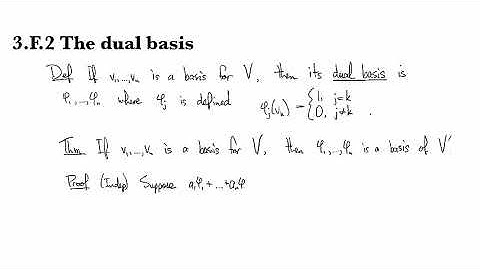 3.F.2 The dual basis
Def If v₁,...,vₙ is a basis for V, then its dual basis is
φ₁,...,φₙ where φⱼ is defined φⱼ(vₖ) = {1, j=k
0, j≠k .
Thm If v₁,...,vₙ is a basis for V, then φ₁,...,φₙ is a basis of V'
Proof (Indep) Suppose a₁φ₁+...+aₙφ